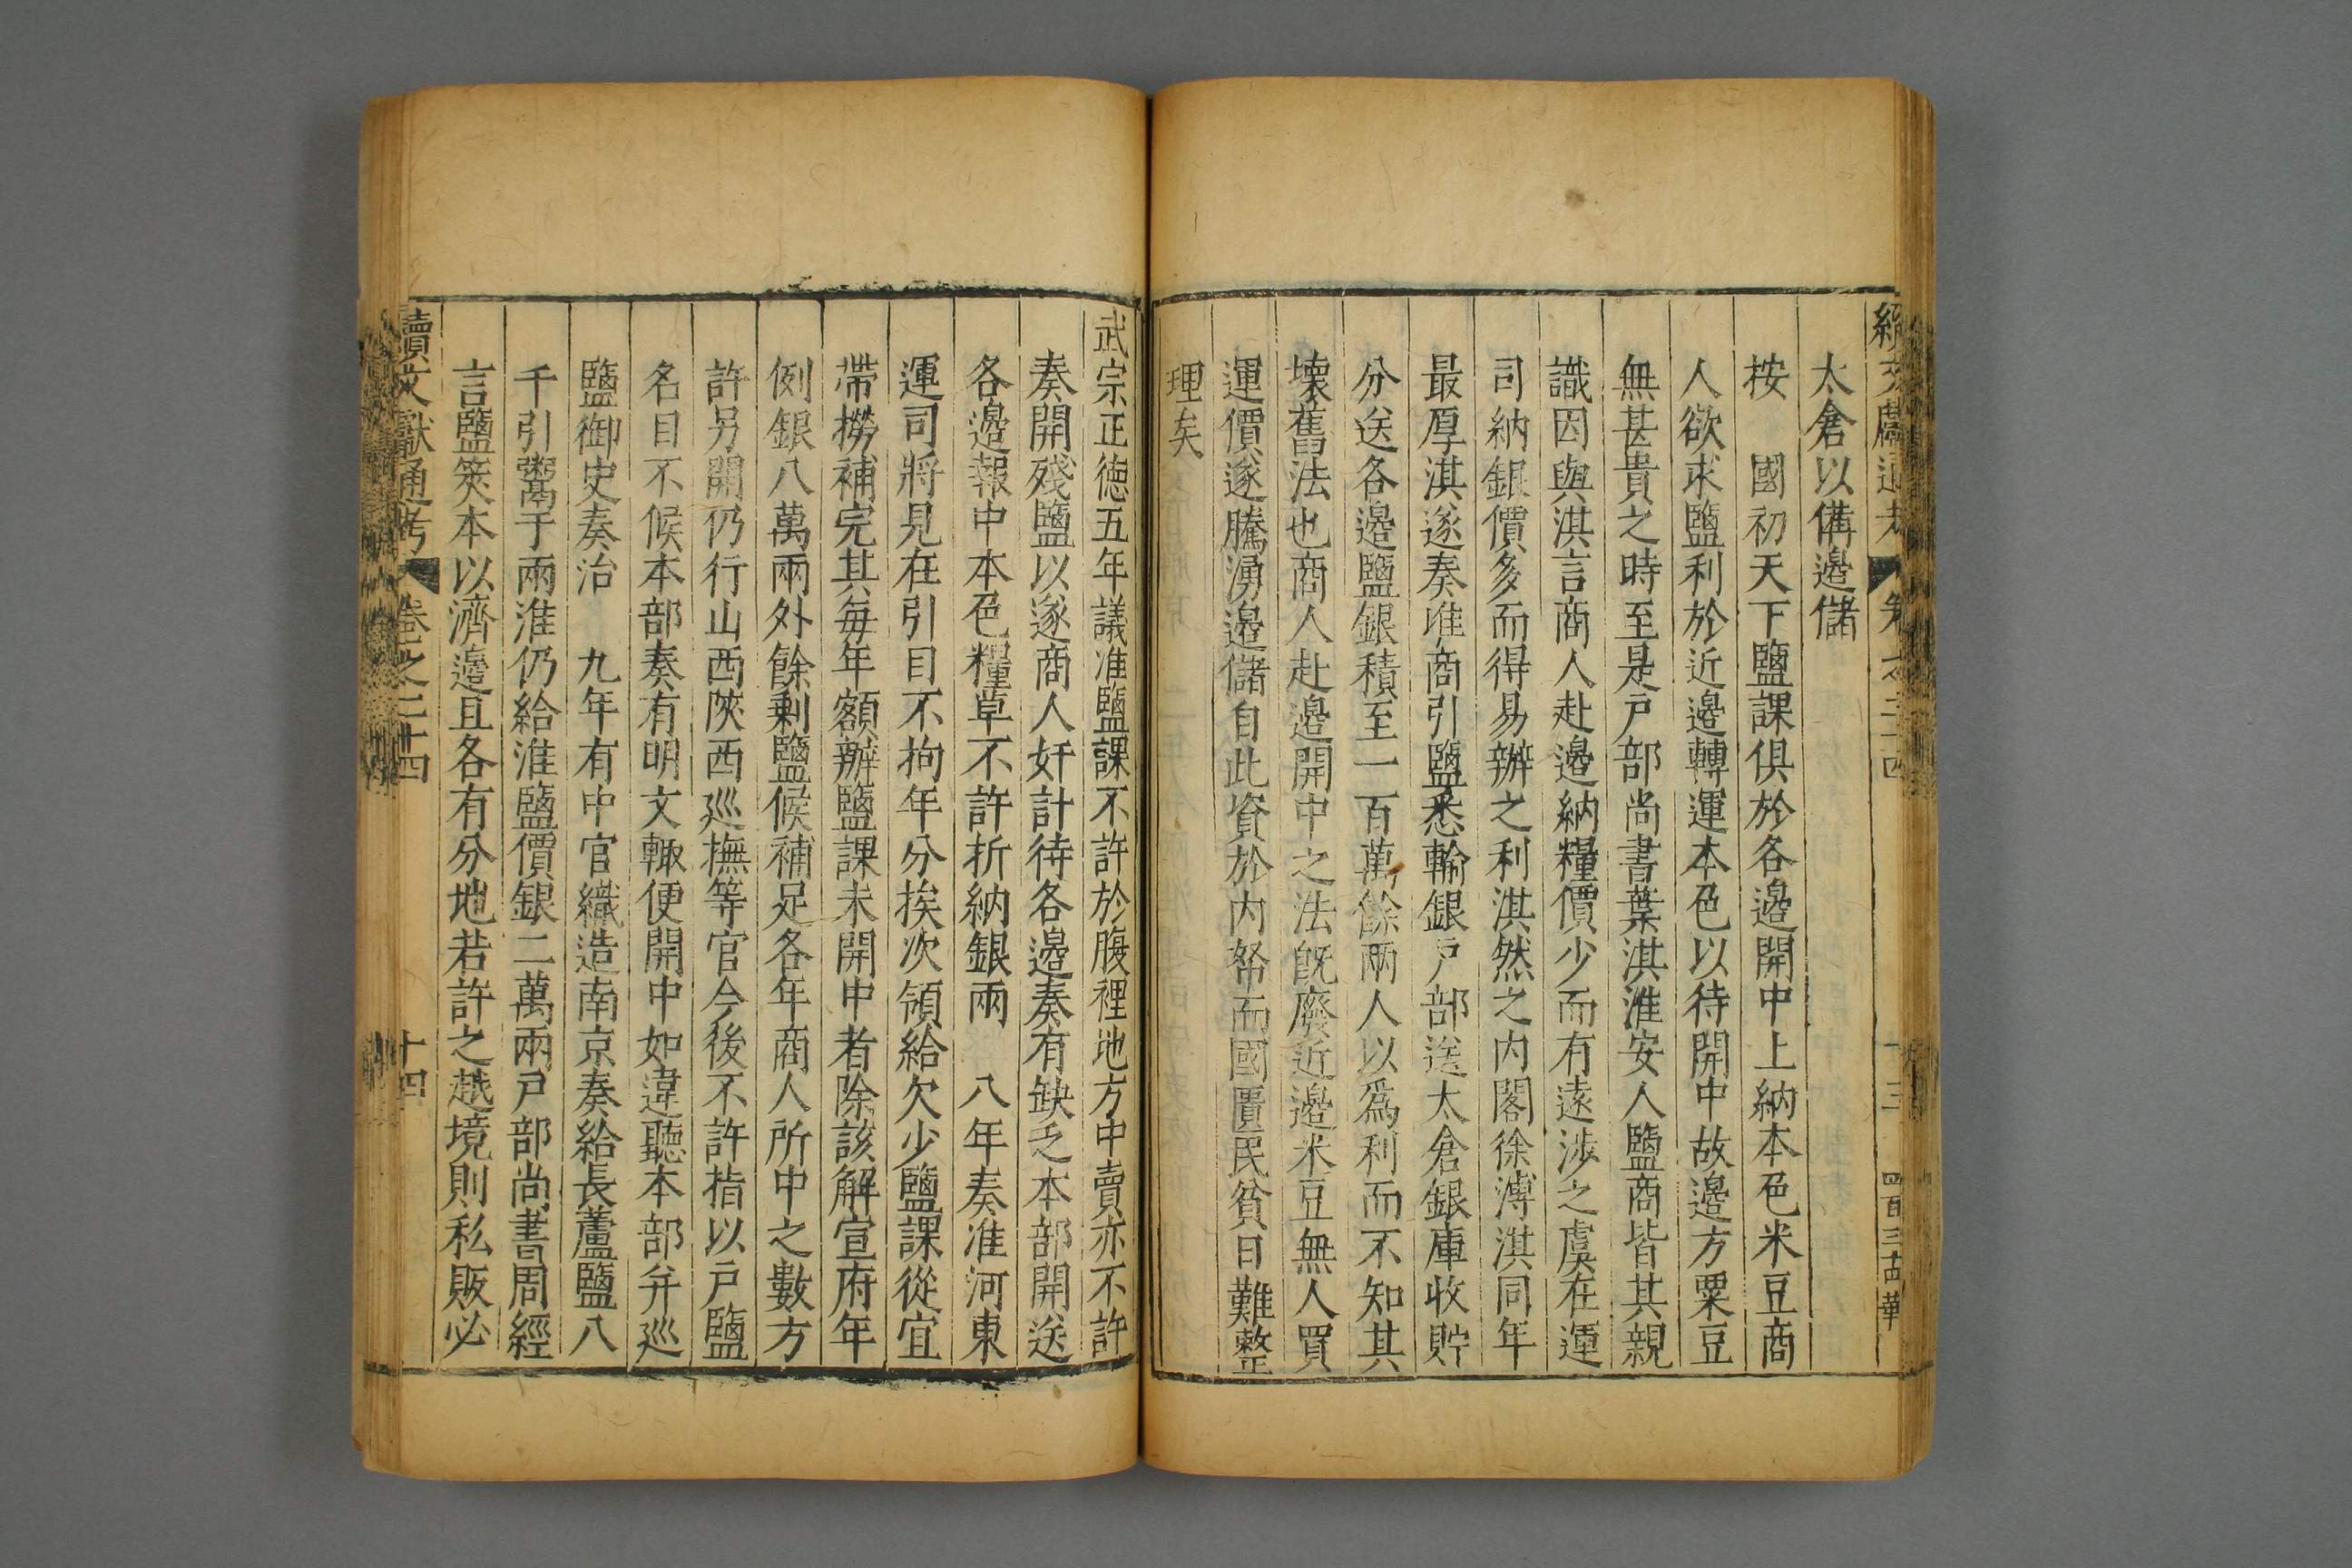 續文獻通考 卷之二十四 十三 四百三十 華
太倉以備邊儲
按 國初天下鹽課俱於各邊開中上納本色米豆商
人欲求鹽利於近邊轉運本色以待開中故邊方粟豆
無甚貴之時至是戶部尚書葉淇淮安人鹽商皆其親
識因與淇言商人赴邊納糧價少而有遠涉之虞在運
司納銀價多而得易辦之利淇然之內閣徐溥淇同年
最厚淇遂奏准商引鹽悉輸銀戶部送太倉銀庫收貯
分送各邊鹽銀積至一百萬餘兩人以爲利而不知其
壞舊法也商人赴邊開中之法既廢近邊米豆無人買
運價遂騰湧邊儲自此資於內帑而國匱民貧日難整
理矣
武宗正德五年議准鹽課不許於腹裡地方中賣亦不許
奏開殘鹽以遂商人奸計待各邊奏有缺乏本部開送
各邊報中本色糧草不許折納銀兩 八年奏准河東
運司將見在引目不拘年分挨次領給欠少鹽課從宜
帶撈補完其每年額辦鹽課未開中者除該解宣府年
例銀八萬兩外餘剩鹽候補足各年商人所中之數方
許另開仍行山西陝西巡撫等官今後不許指以戶鹽
名目不候本部奏有明文輙便開中如違聽本部并巡
鹽御史奏治 九年有中官織造南京奏給長蘆鹽八
千引鬻于兩淮仍給淮鹽價銀二萬兩戶部尚書周經
言鹽筴本以濟邊且各有分地若許之越境則私販必
續文獻通考 卷之二十四 十四